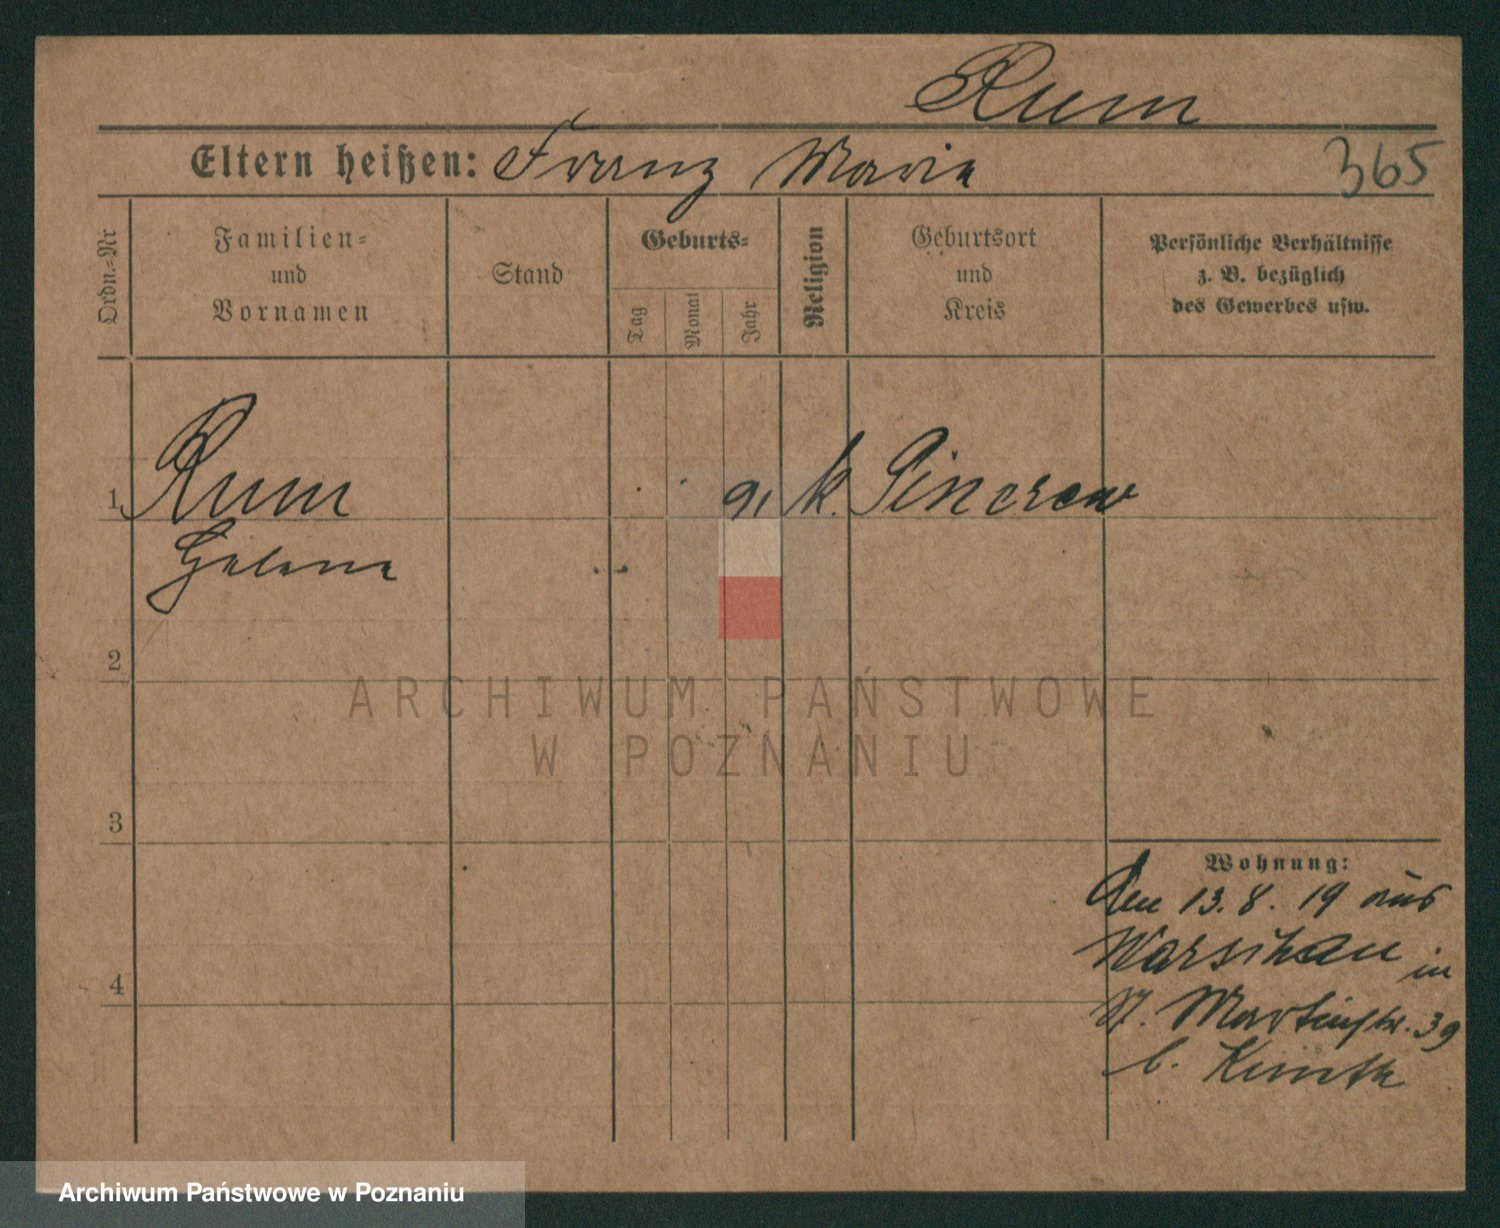 Rum
Eltern heißen: Franz Marie
365
Ordn.-Nr
Familien-
und
Vornamen
Stand
Geburts-
Tag
Monat
Jahr
Religion
Geburtsort
und
Kreis
Persönliche Verhältnisse
z. B. bezüglich
des Gewerbes usw.
1 Rum
k.
Helene
2
ARCHIWUM PAŃSTWOWE
W POZNANIU
3
Wohnung:
Den 13. 8. 19 aus
Warschau in
St. Martinstr. 39
4
b.
Archiwum Państwowe w Poznaniu